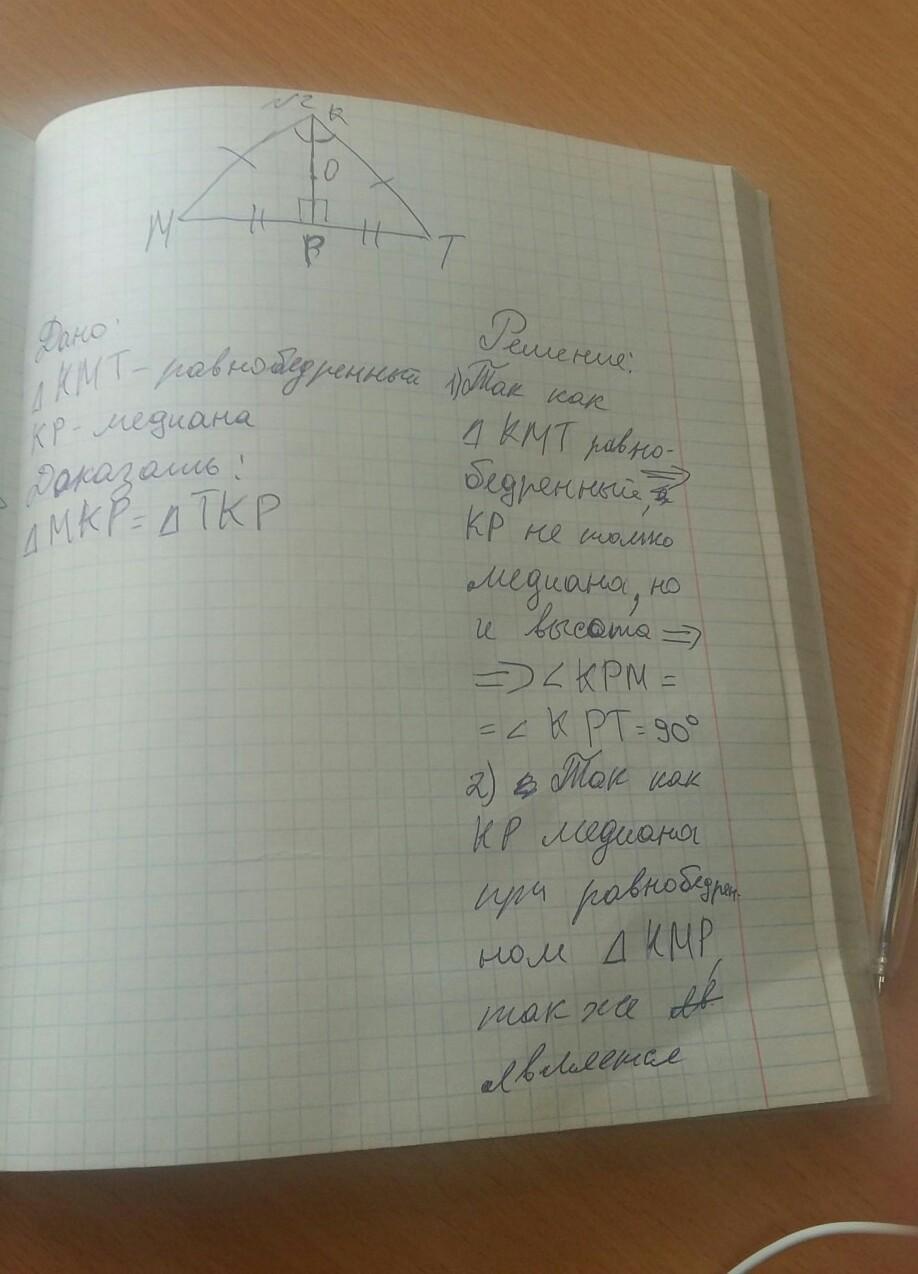 №2
K
O
M
P
T
Дано:
Δ КМТ - равнобедренный
КР - медиана
Доказать:
Δ МКР = Δ ТКР
Решение:
1) Так как
Δ КМТ равно-
бедренный, ⇒
КР не только
медиана, но
и высота ⇒
⇒ ∠ КРМ =
= ∠ КРТ = 90°
2) Так как
КР медиана
при равнобедрен-
ном Δ КМР,
так же
является